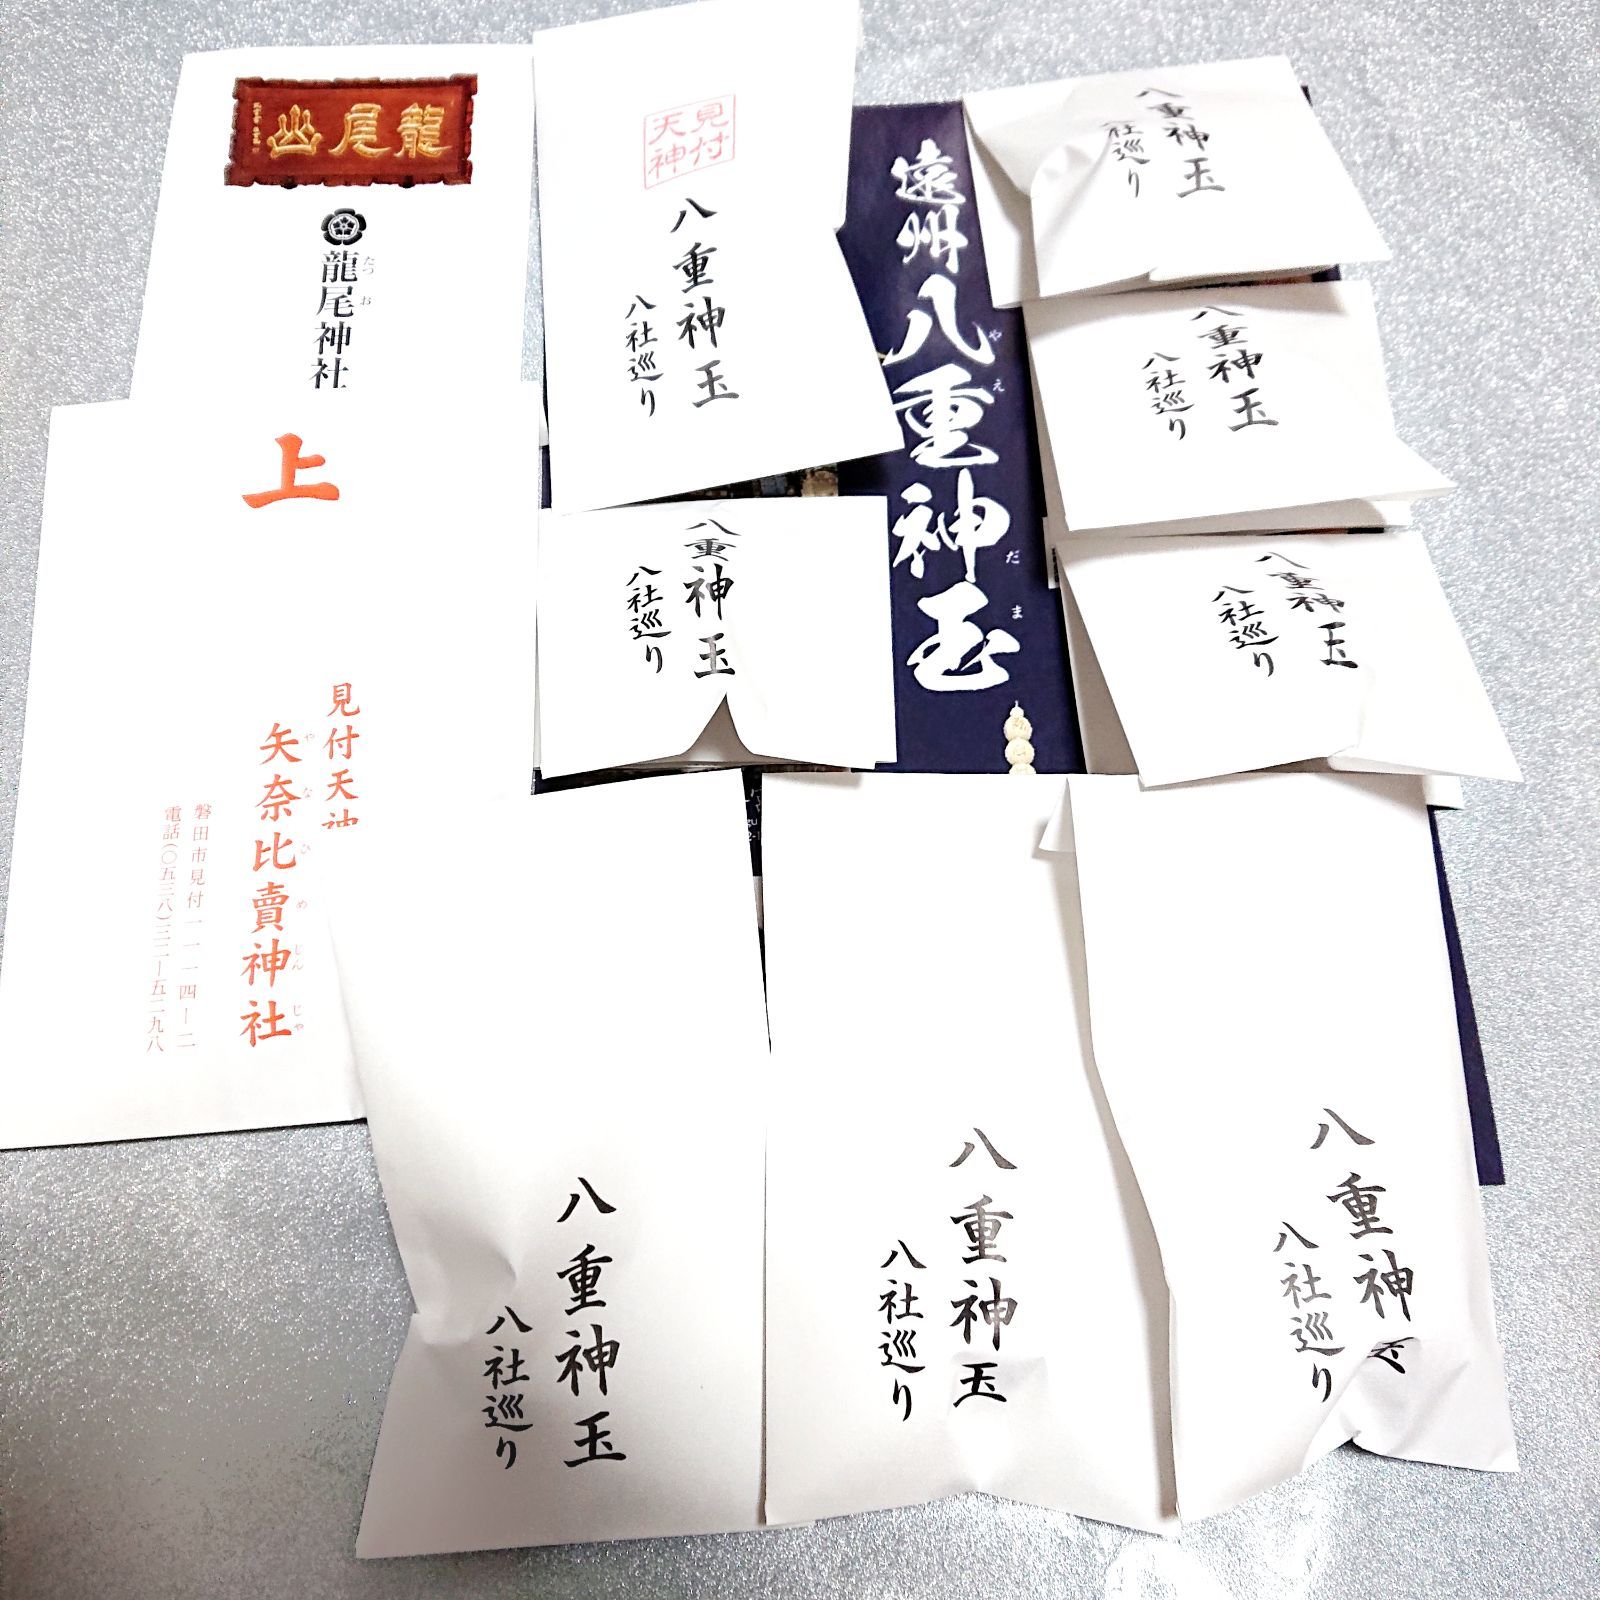 龍尾山
龍尾神社
たつお
上
見付天神
矢奈比賣神社
やなひめじんじゃ
磐田市見付一一一四―二
電話(〇五三八)三二―五二九八
見付
天神
八重神玉
八社巡り
八重神玉
八社巡り
遠州八重神玉
やえだま
八重神玉
八社巡り
八重神玉
八社巡り
八重神玉
八社巡り
八重神玉
八社巡り
八重神玉
八社巡り
八重神玉
八社巡り